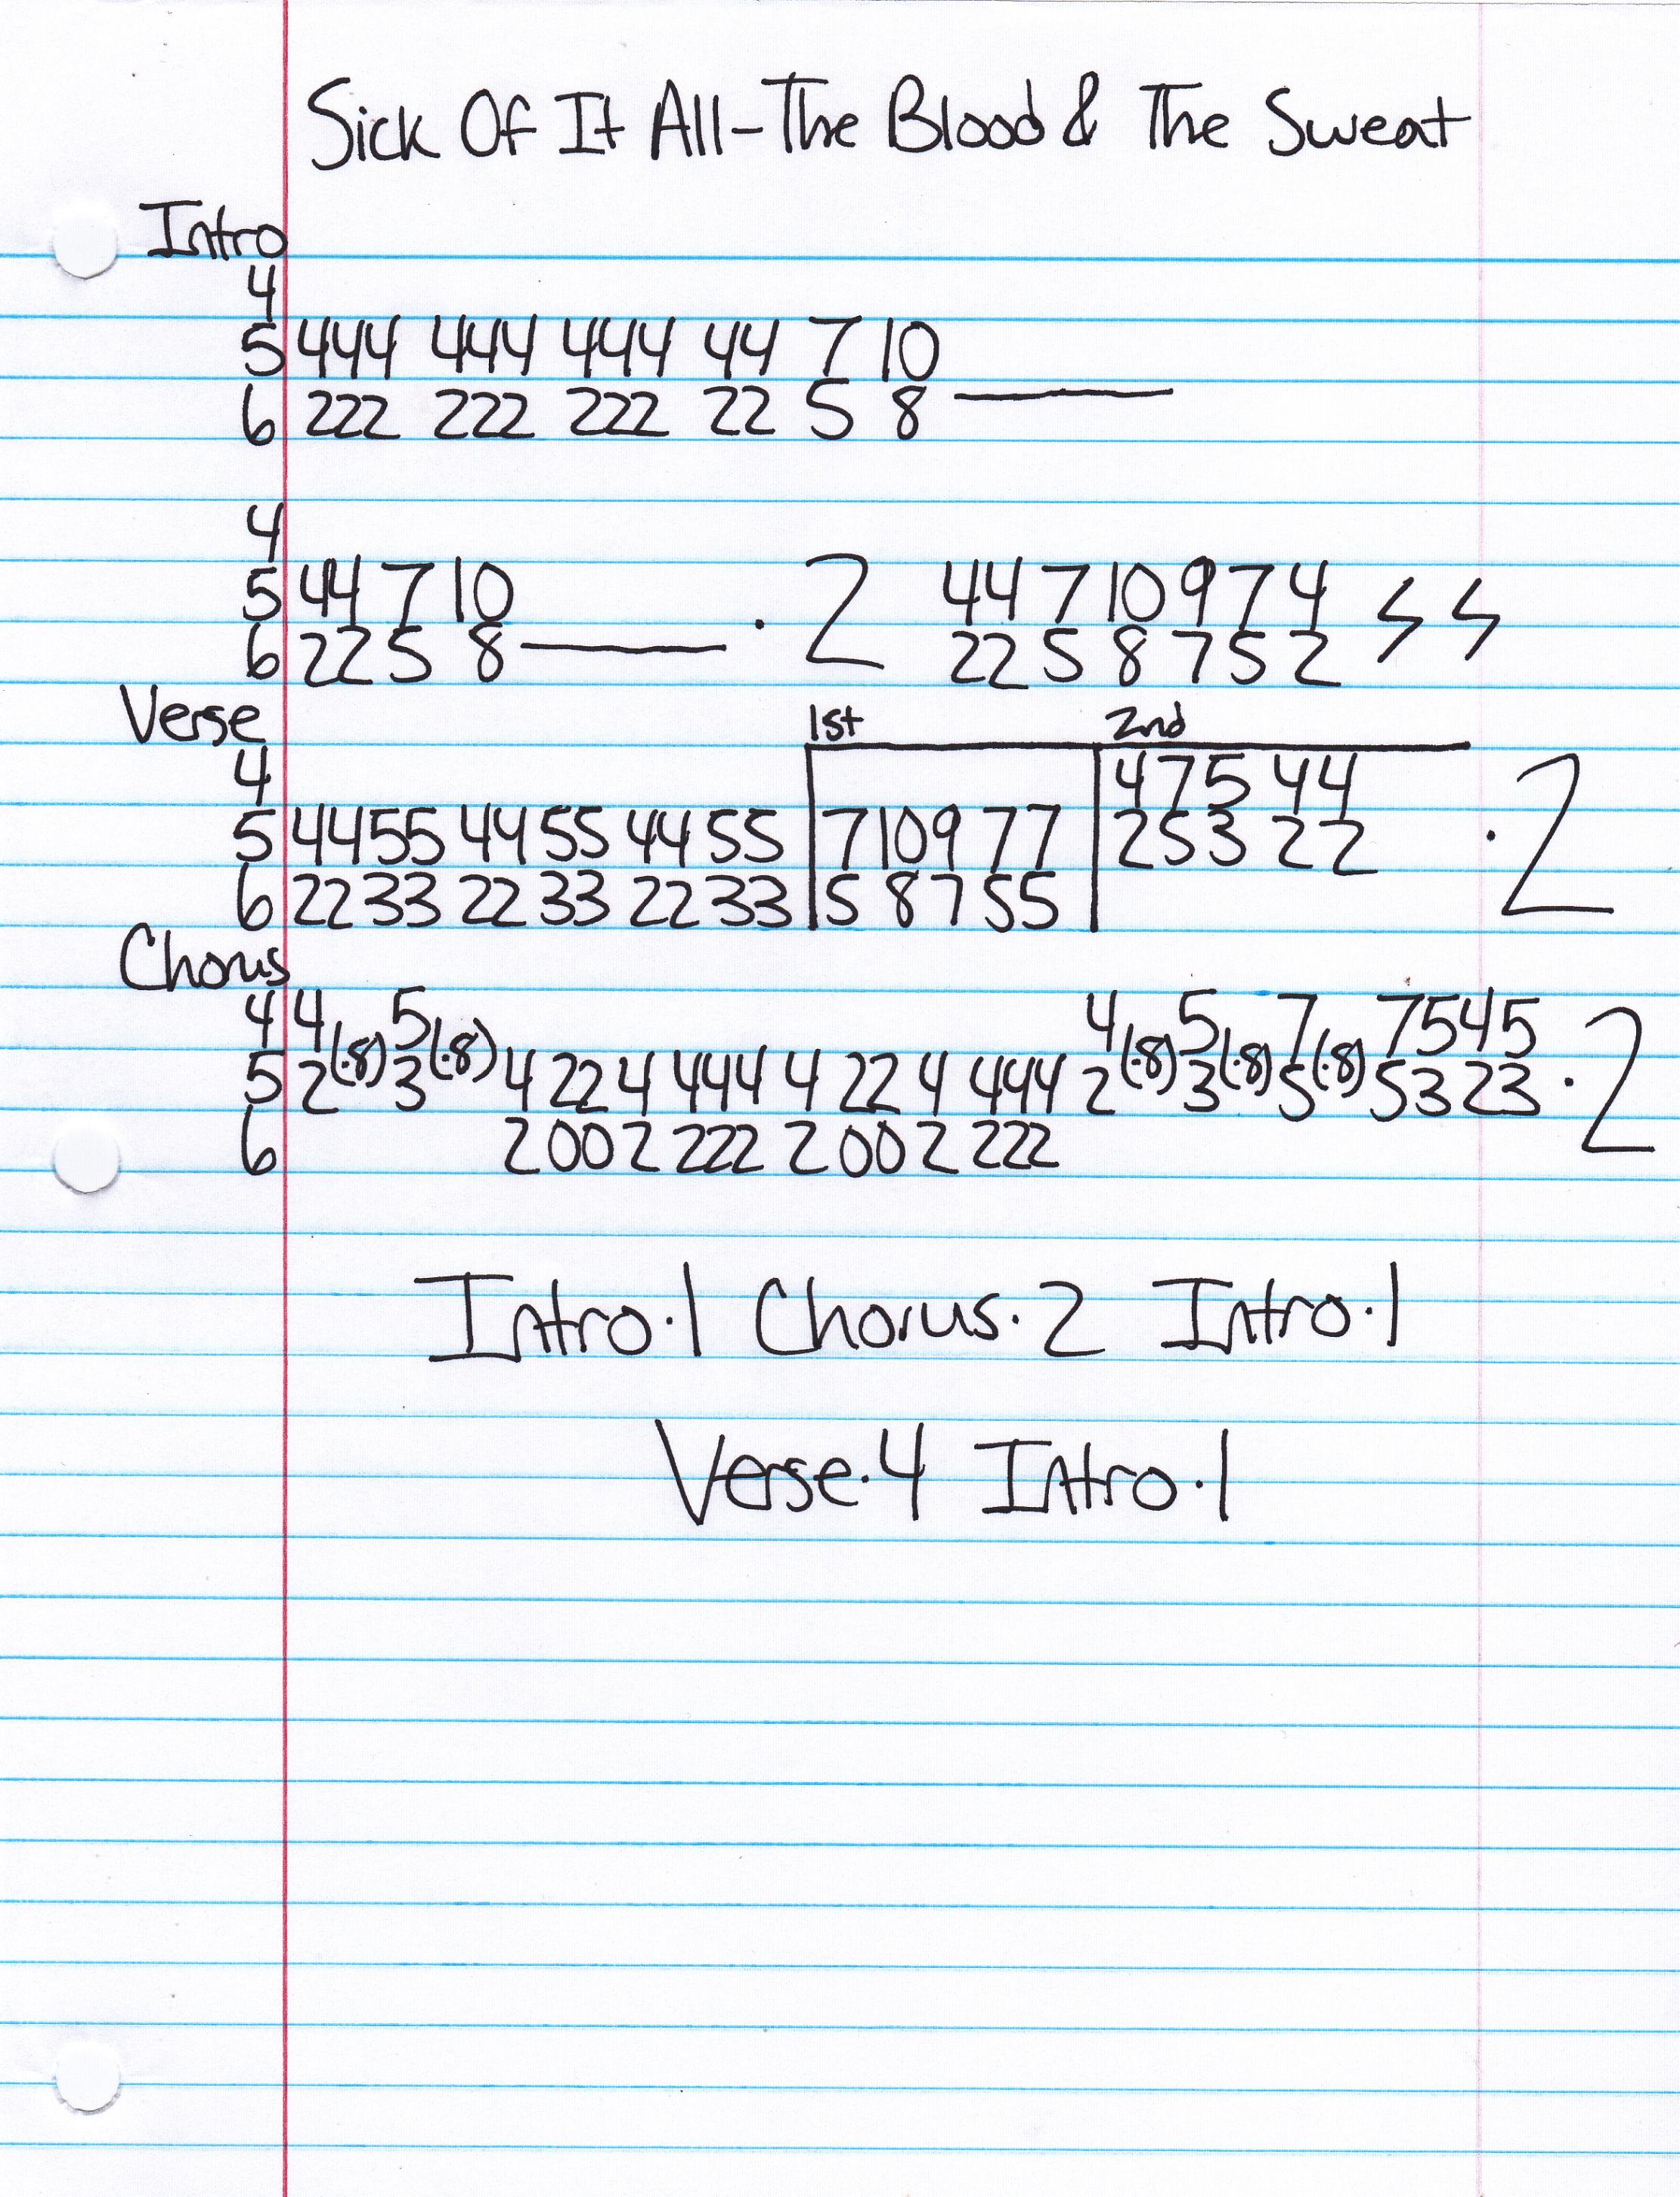 Sick Of It All - The Blood & The Sweat
Intro
4
5 444 444 444 44 7 10
6 222 222 222 22 5 8
4
5 44 7 10 · 2 44 7 10 9 7 4
6 22 5 8 22 5 8 7 5 2
Verse 1st 2nd
4 4 7 5 44
5 4455 44 55 44 55 7 10 9 77 2 5 3 22 · 2
6 2233 22 33 22 33 5 8 7 55
Chorus
4 4 5 4 5 7 7545
5 2 (·8) 3 (·8) 4 22 4 444 4 22 4 444 2 (·8) 3 (·8) 5 (·8) 53 23 · 2
6 2 00 2 222 2 00 2 222
Intro·1 Chorus·2 Intro·1
Verse·4 Intro·1